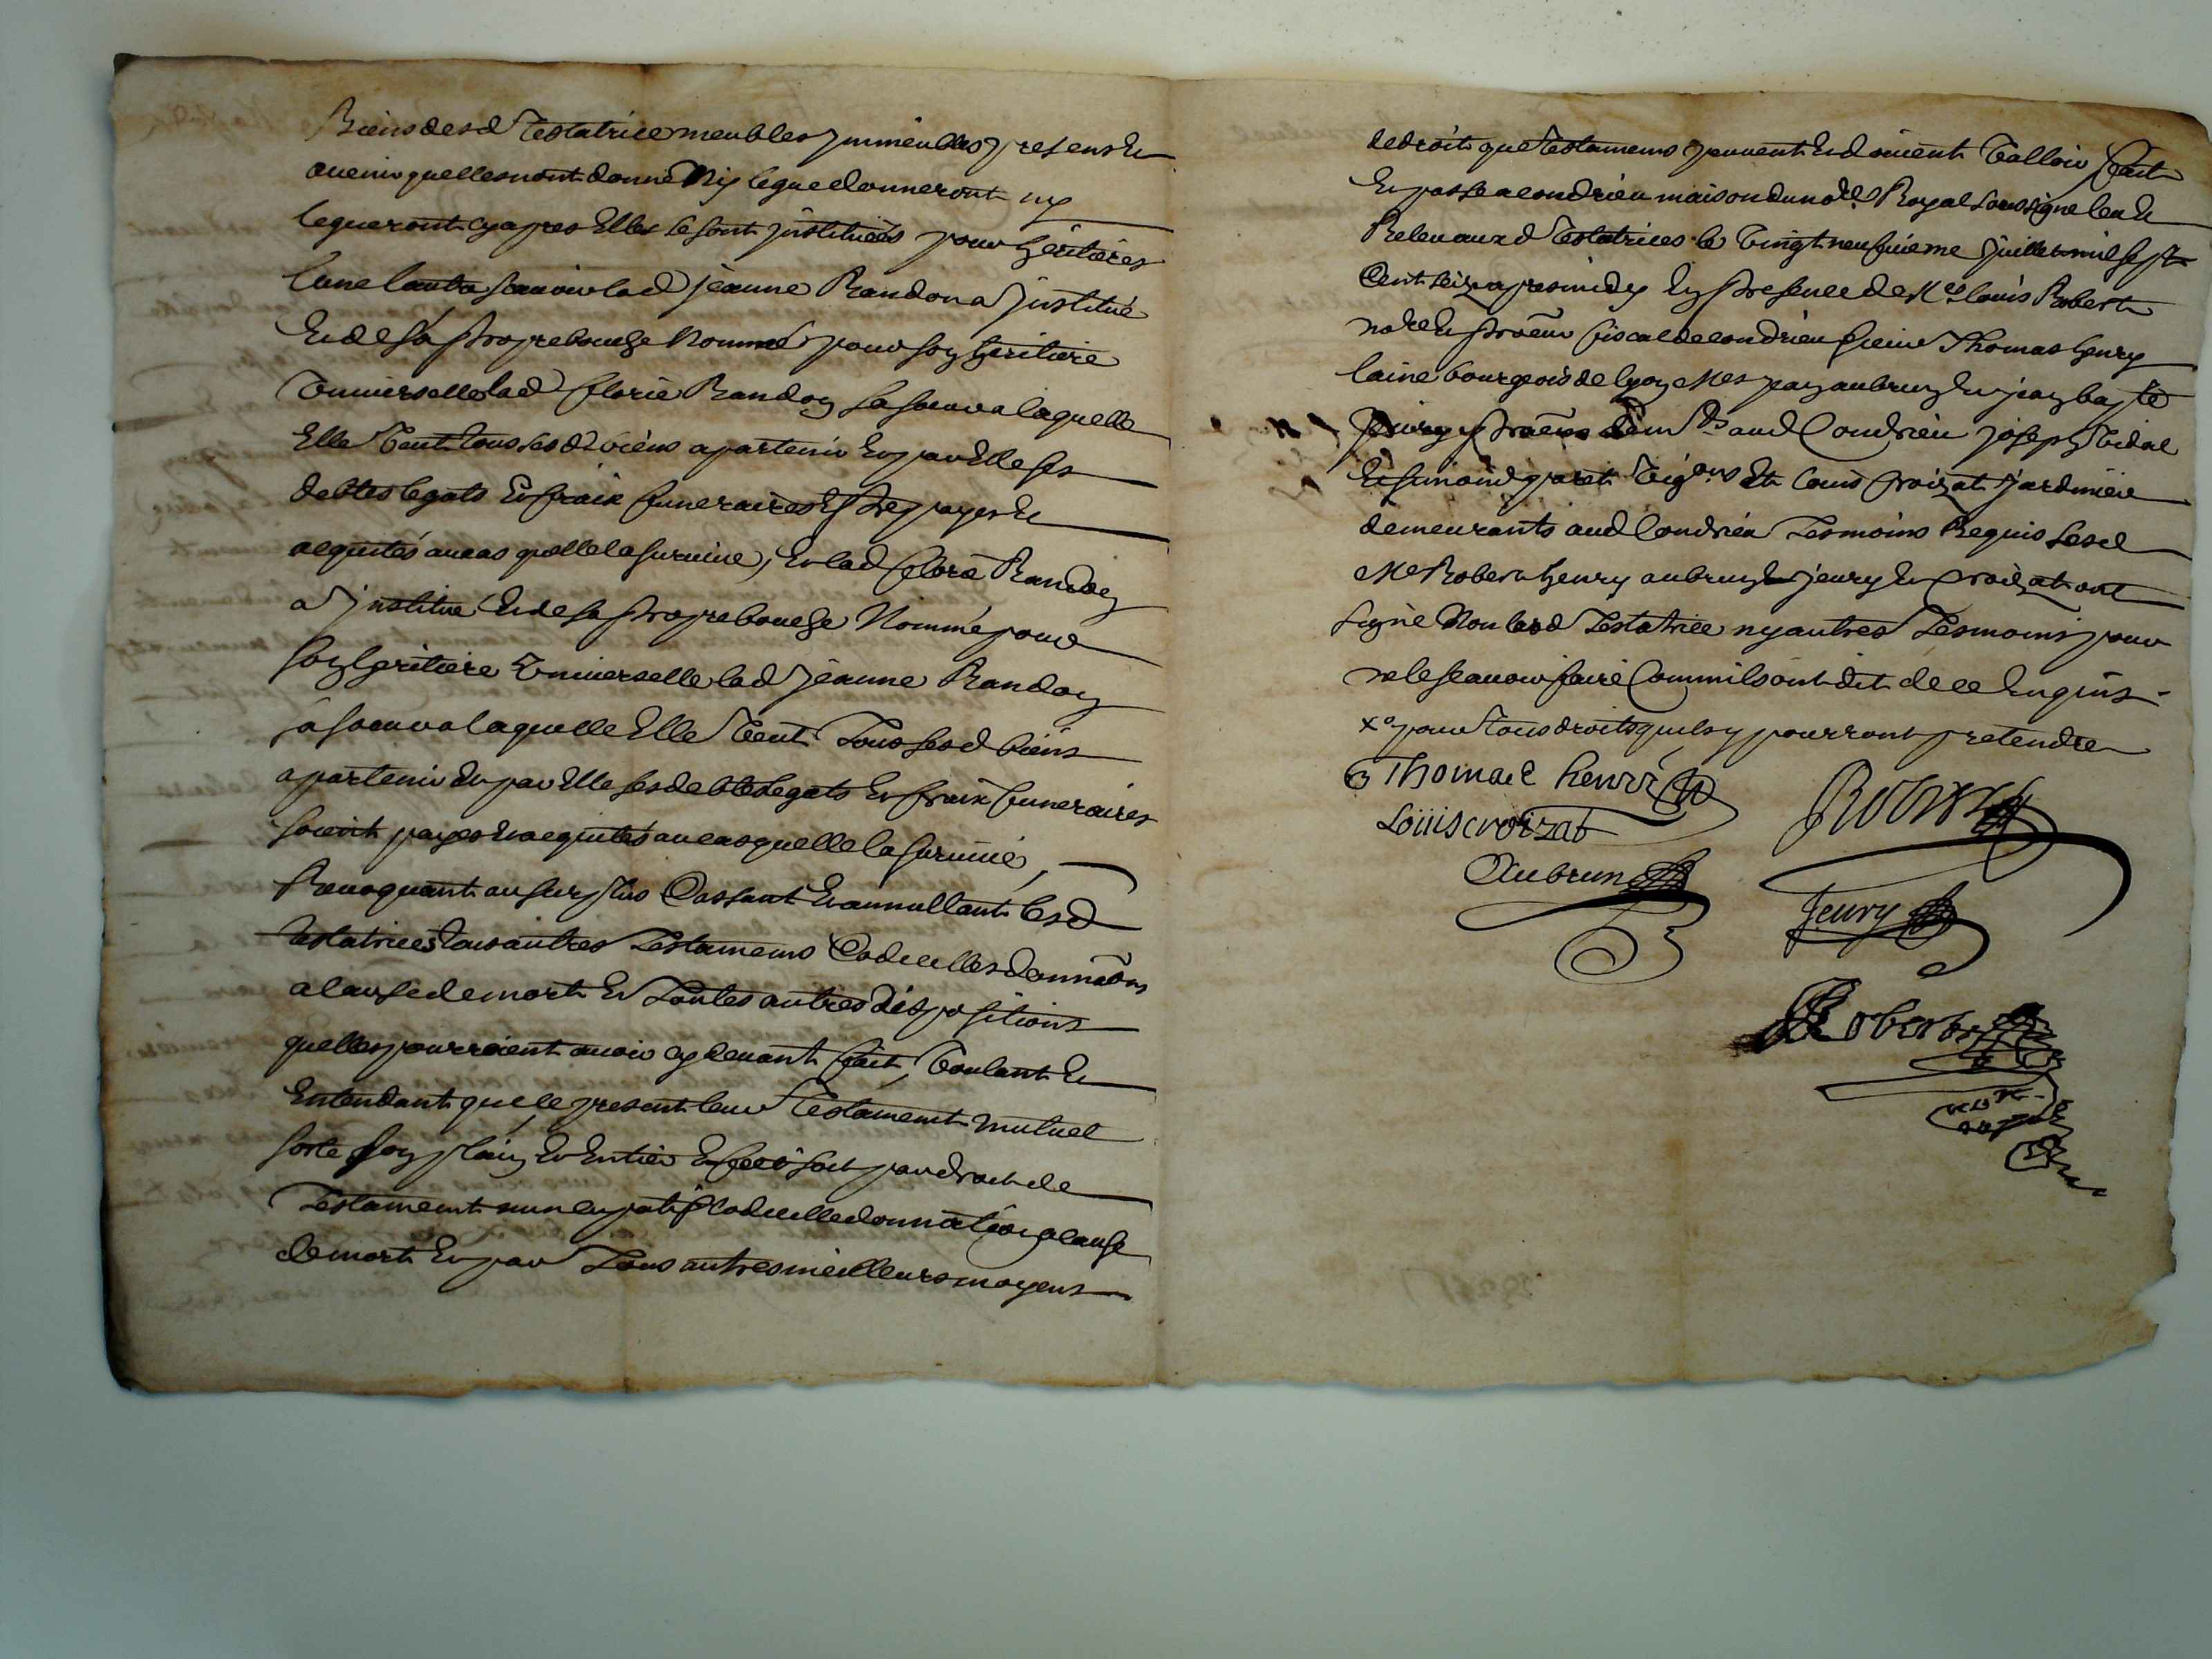 Biens desd Testatrice meubles immeubles presens et
avenir quelles nont donné Ny legue donneront ny
legueront cy apres Elles se sont instituées pour héritières
lune lautre scavoir lad jeanne Randon a institué
Et de sa propre bouche Nommé pour son héritière
Universelle lad florie Randon sa soeur a laquelle
Elle veut tous ses d biens apartenir Et par Elle ses
debtes legats Et fraix funeraires Estre payes Et
aquités au cas quelle la survive, Et lad florie Randon
a institué Et de sa propre bouche Nommé pour
son heritiere Universelle lad jeanne Randon
sa soeur a laquelle Elle veut Tous ses d biens
apartenir Et par Elle ses debtes legats Et fraix funeraires
soient payes Et aquités au cas quelle la survive,
Revoquant au surplus Cassant Et annullant lesd
testatrices tous autres Testamens Codicilles donnaõns
a cause de mort Et Toutes autres dispositions
quelles pourroient avoir cy devant fait, Voulant Et
Entendant que le present leur Testament mutuel
sorte son plain Et Entier Effect soit par droit de
Testament nuncupatif Codicille donnation a cause
de mort Et par Tous autres meilleurs moyens
de droit que testamens peuvent Et doivent Valloir fait
Et passe a condrieu maison du no.re Royal soussigne leu Et
Releu aux d Testatrices le Vingt neufvieme juillet mil sept
Cent seize apres midy En presence de Me louis Robert
no.re Et procur fiscal de condrieu sieur Thomas henry
laine bourgeois de lyon Mes jean aubrun Et jean bapte
jeury aud Condrieu joseph Vidal
Et simond paret Vig.ons Et louis croizat jardinier
demeurants aud Condrieu Tesmoins Requis lesd
Me Robert henry aubrun jeury Et croizat ont
signé Non lesd Testatrice ny autres Tesmoins pour
ne le scavoir faire Comm ils ont dit de ce Enquis
x.o pour tous droits quils y pourront pretendre
Thomas henri
Robert
Louis croizat
Aubrun
Jeury
Robert
no.re
royal